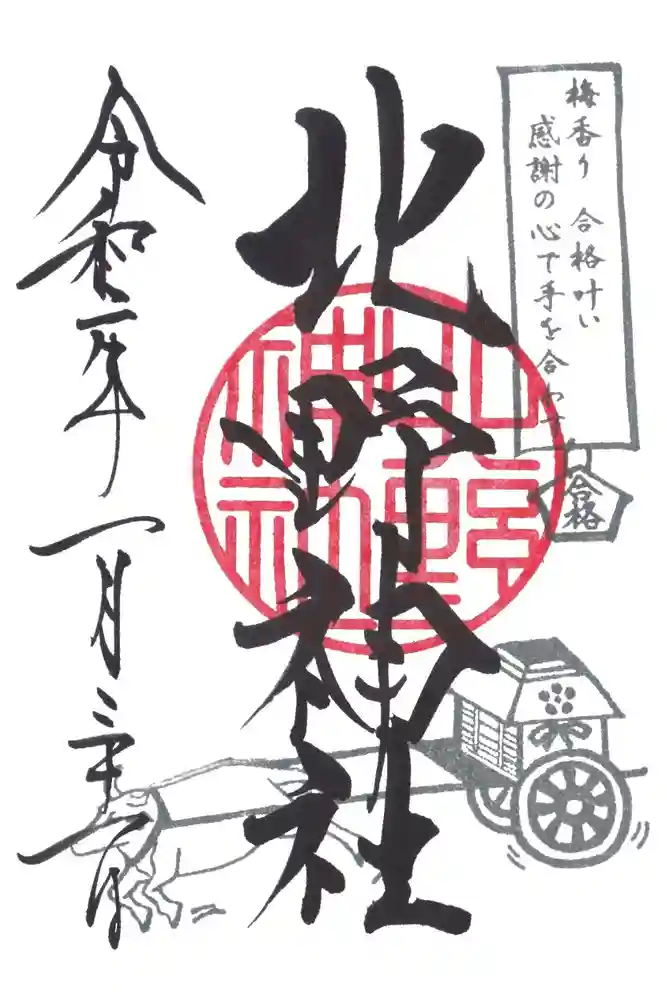 梅香り 合格叶い
感謝の心で手を合わす
合格
北野神社
令和二年 一月三十一日